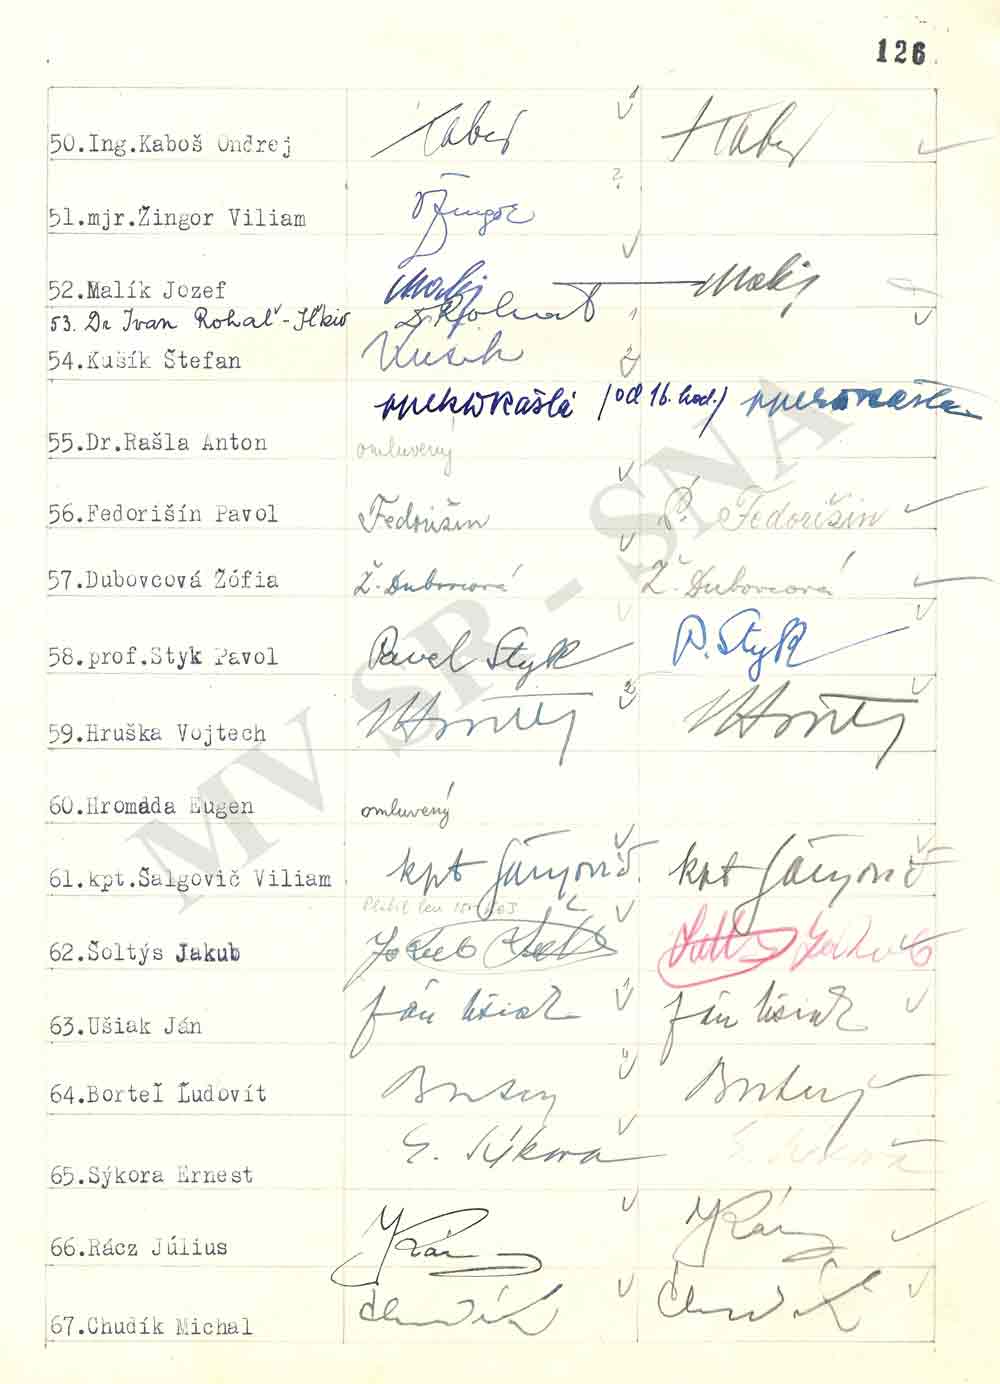 126
50.Ing.Kaboš Ondrej
51.mjr.Žingor Viliam Žingor
52.Malík Jozef Malík Malík
53. Dr Ivan Rohaľ-Iľkiv Dr Rohaľ
54.Kušík Štefan Kušík
(od 16. hod.)
55.Dr.Rašla Anton omluvený
56.Fedorišín Pavol Fedorišin P. Fedorišin
57.Dubovcová Žófia Ž. Dubovcová Ž. Dubovcová
58.prof.Styk Pavol Pavel Styk P. Styk
59.Hruška Vojtech
60.Hromada Eugen omluvený
61.kpt.Šalgovič Viliam kpt kpt
62.Šoltýs Jakub Jakub
63.Ušiak Ján Ján Ušiak Ján Ušiak
64.Borteľ Ľudovít
65.Sýkora Ernest E. Sýkora E. Sýkora
66.Rácz Július
67.Chudík Michal Chudík Chudík
MV SR - SNA